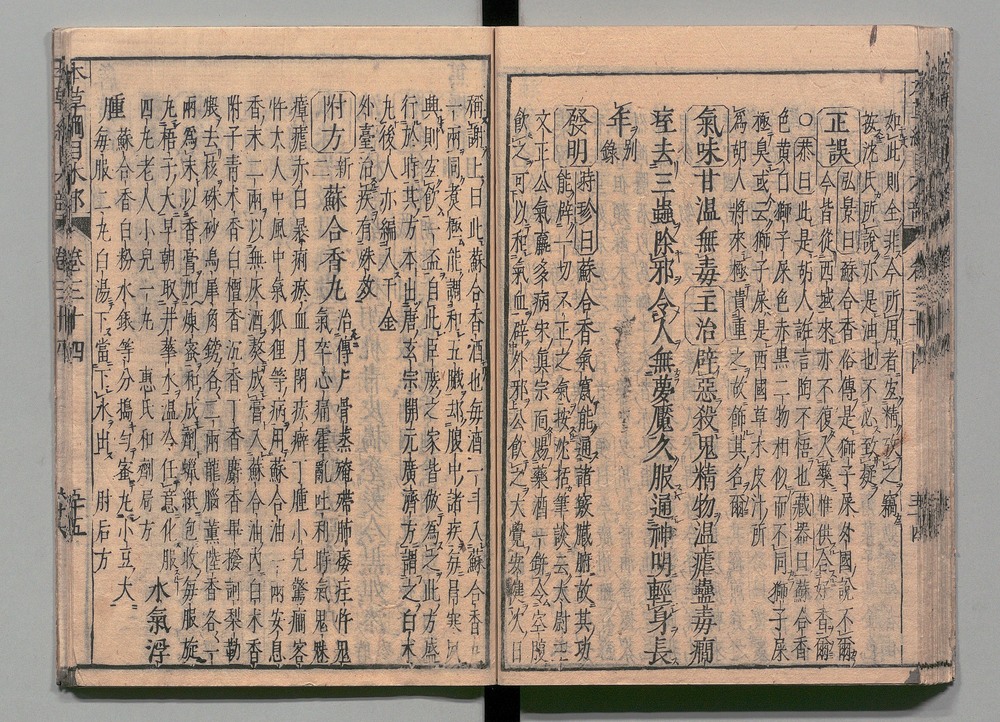 如此則全非今所用者宜精攷之竊
按沈氏所說亦是油也不必致疑
正誤弘景曰蘇合香俗傳是獅子屎外國說不爾
今皆從西域來亦不復入藥惟供合好香爾
○恭曰此是胡人誑言陶不悟也藏器曰蘇合香
色黄白獅子屎色赤黑二物相似而不同獅子屎
極臭或云獅子屎是西國草木皮汁所
爲胡人將來極貴重之故飾其名爾
氣味甘温無毒主治辟惡殺鬼精物温瘧蠱毒癇
痓去三蟲除邪令人無夢魘久服通神明輕身長
年別錄
發明時珍曰蘇合香氣竄能通諸竅臟腑故其功
能辟一切不正之氣按沈括筆談云太尉王
文正公氣羸多病宋真宗面賜藥酒一缾令空腹
飲之可以和氣血辟外邪公飲之大覺安健次日
稱謝上曰此蘇合香酒也每酒一斗入蘇合香丸
一兩同煮極能調和五臟却腹中諸疾每冒寒夙
興則宜飲一盃自此臣庶之家皆倣爲之此方盛
行於時其方本出唐玄宗開元廣濟方謂之白朮
丸後人亦編入千金
外臺治疾有殊效
附方新二蘇合香丸治傳尸骨蒸殗殜肺痿疰忤鬼
氣卒心痛霍亂吐利時氣鬼魅
瘴瘧赤白暴痢瘀血月閉痃癖丁腫小兒驚癇客
忤大人中風中氣狐狸等病用蘇合油一兩安息
香末二兩以無灰酒熬成膏入蘇合油内白朮香
附子青木香白檀香沉香丁香麝香畢撥訶梨勒
煨去核硃砂烏犀角鎊各二兩龍腦薰陸香各一
兩爲末以香膏加煉蜜和成劑蠟紙包收每服旋
丸梧子大早朝取井華水温冷任意化服
四丸老人小兒一丸 惠民和劑局方 水氣浮
腫蘇合香白粉水銀等分搗勻蜜丸小豆大
每服二丸白湯下當下水出 肘后方
本草綱目木部 卷三十四 五十五